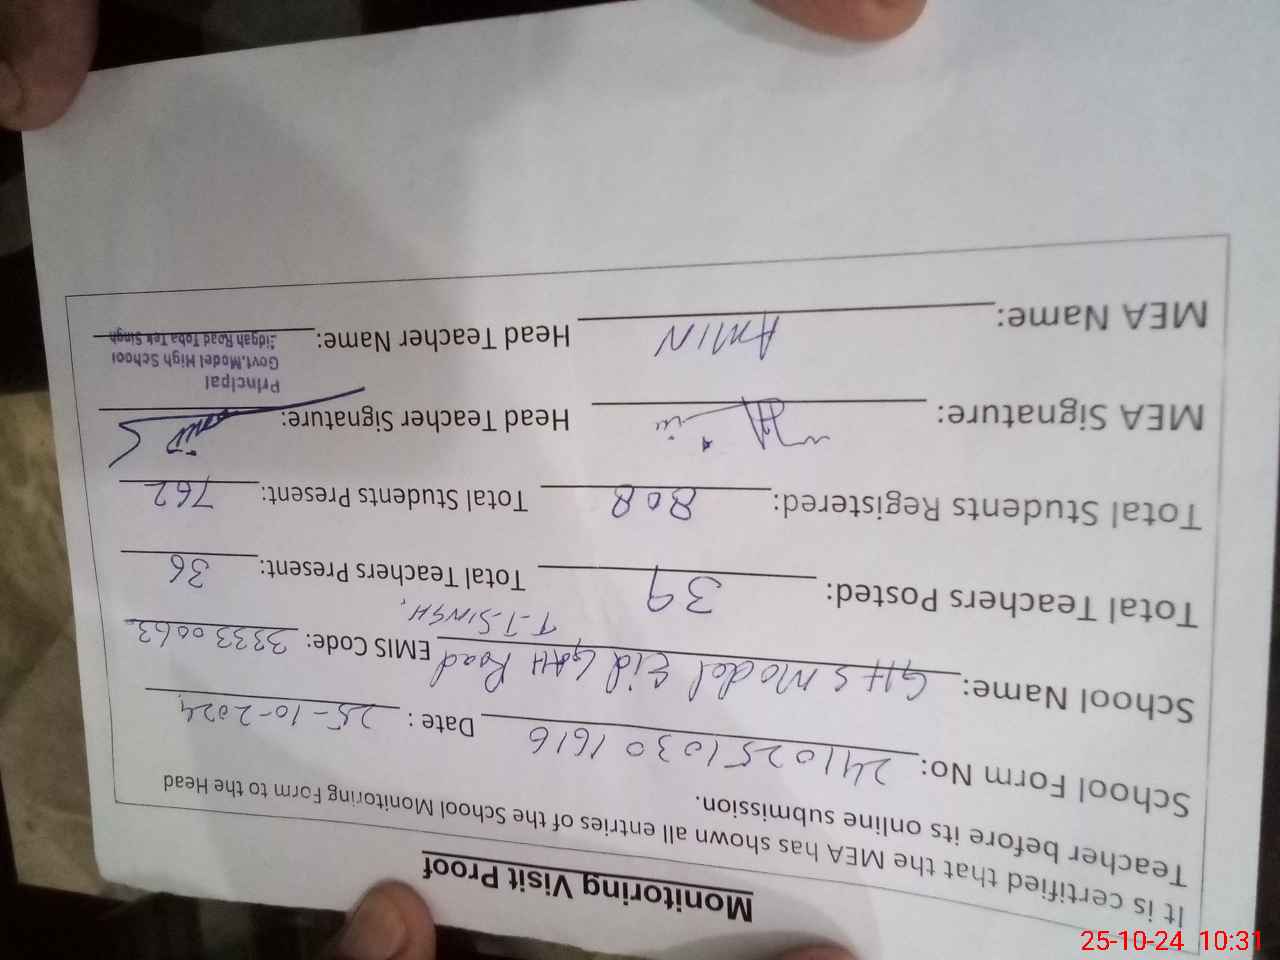 Monitoring Visit Proof
It is certified that the MEA has shown all entries of the School Monitoring Form to the Head
Teacher before its online submission.
School Form No: 2411025 1030 1616 Date : 25-10-2024
School Name: GHS Model Eid GAH Road T-T-SINGH, EMIS Code: 33330063
Total Teachers Posted: 39 Total Teachers Present: 36
Total Students Registered: 808 Total Students Present: 762
MEA Signature: Head Teacher Signature:
MEA Name: AMIN Head Teacher Name:
Principal
Govt.Model High School
Eidgah Road Toba Tek Singh
25-10-24 10:31